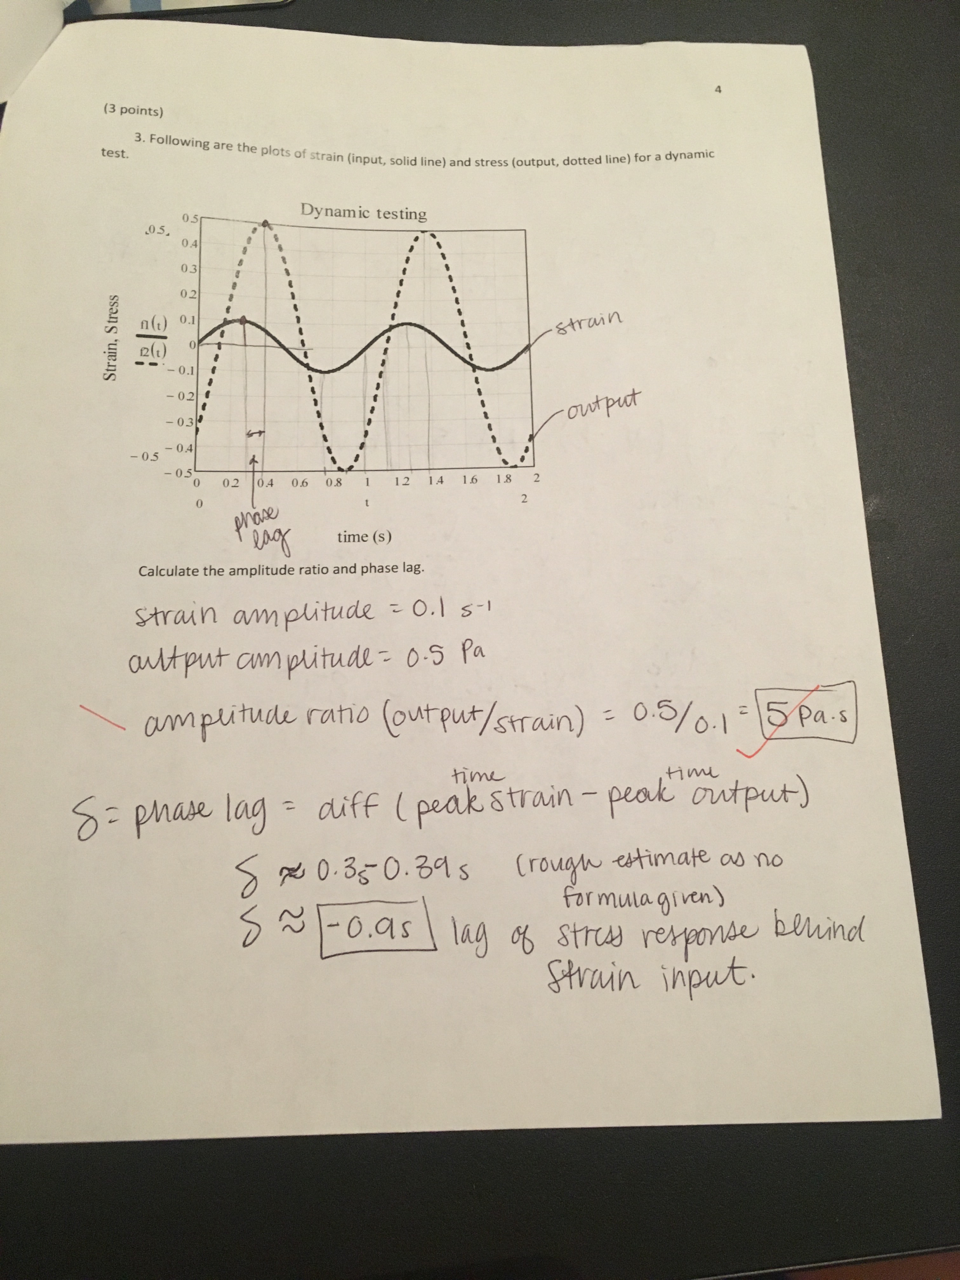 4
(3 points)
3. Following are the plots of strain (input, solid line) and stress (output, dotted line) for a dynamic
test.
Dynamic testing
.05.
0.5
0.4
0.3
0.2
0.1
0
- 0.1
- 0.2
- 0.3
- 0.4
- 0.5
- 0.5
Strain, Stress
strain
output
0 0.2 0.4 0.6 0.8 1 1.2 1.4 1.6 1.8 2
0 t 2
phase
lag
time (s)
Calculate the amplitude ratio and phase lag.
strain amplitude = 0.1 s-1
output amplitude = 0.5 Pa
amplitude ratio (output/strain) = 0.5/0.1 = 5 Pa·s
time time
δ = phase lag = diff (peak strain - peak output)
δ ≈ 0.3s-0.39s (rough estimate as no
formula given)
δ ≈ -0.9s lag of stress response behind
strain input.